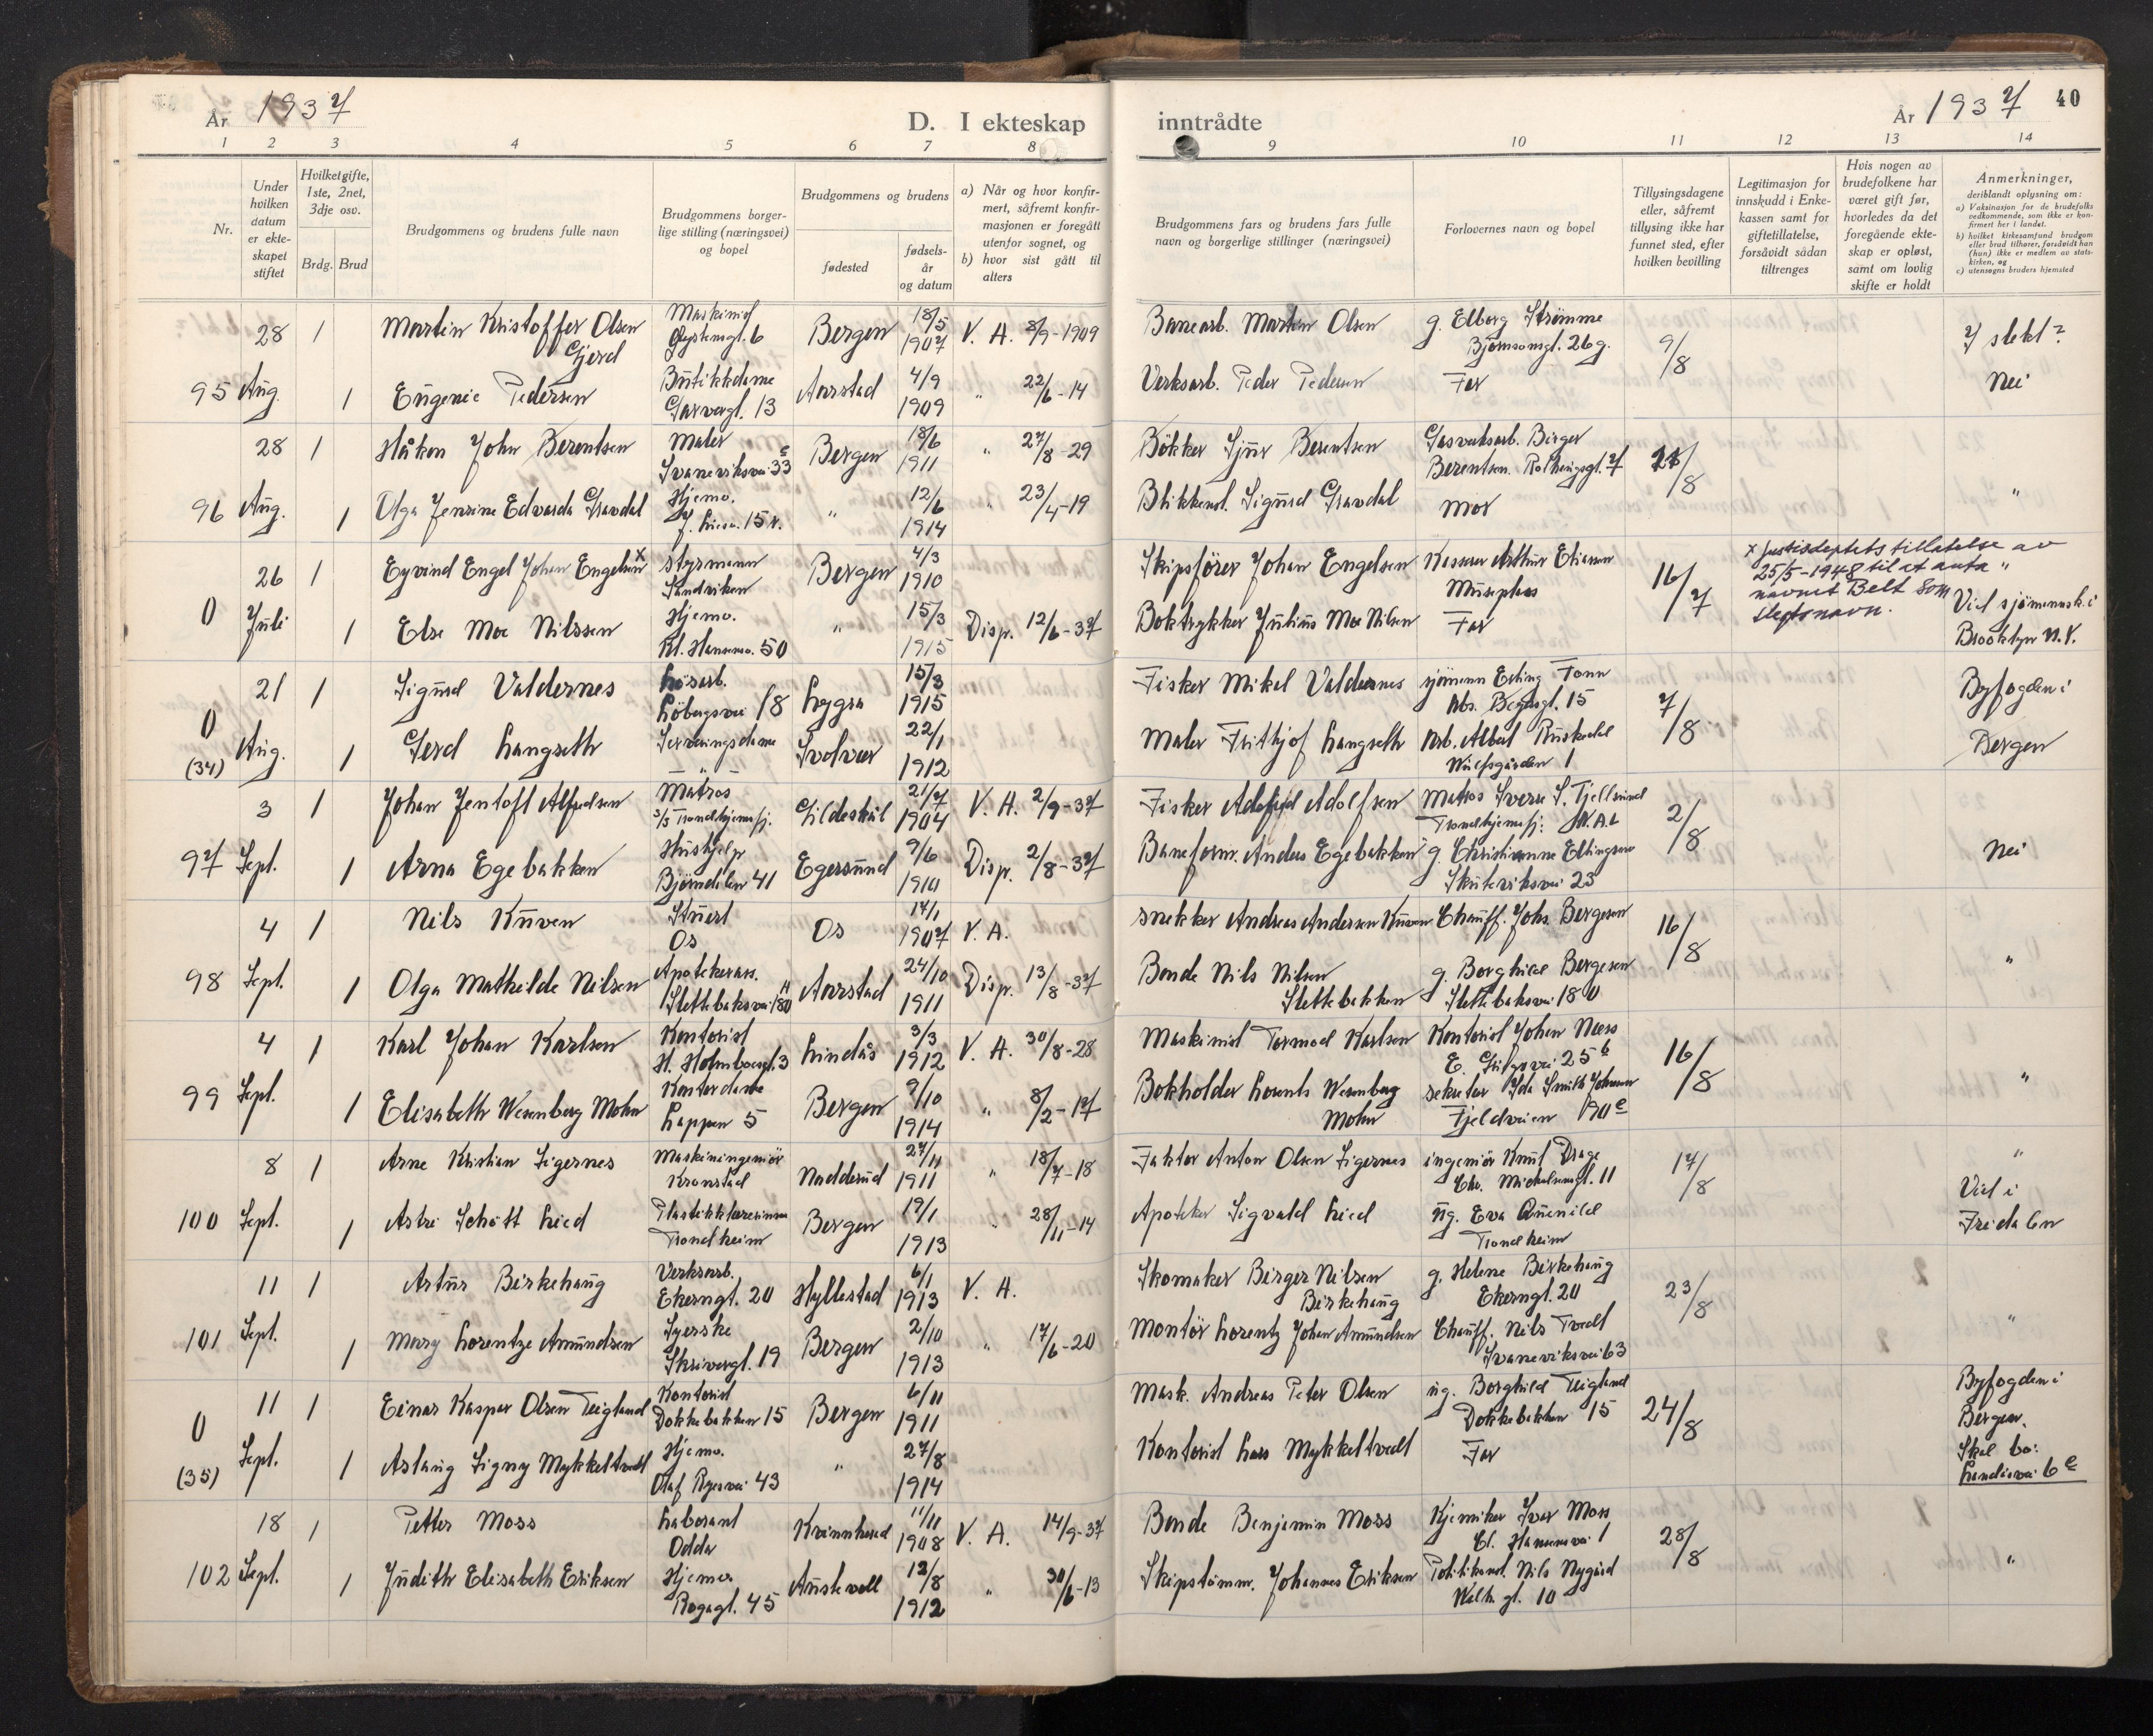 År 1937
D. I ekteskap
inntrådte
År 1937 40
1 2 3 4 5 6 7 8 9 10 11 12 13 14
Nr.
Under hvilken datum er ekteskapet stiftet
Hvilket gifte, 1ste, 2net, 3dje osv.
Brdg. Brud
Brudgommens og brudens fulle navn
Brudgommens borgerlige stilling (næringsvei) og bopel
Brudgommens og brudens
fødested
fødselsår og datum
a) Når og hvor konfirmert, såfremt konfirmasjonen er foregått utenfor sognet, og
b) hvor sist gått til alters
Brudgommens fars og brudens fars fulle navn og borgerlige stillinger (næringsvei)
Forlovernes navn og bopel
Tillysingsdagene eller, såfremt tillysing ikke har funnet sted, efter hvilken bevilling
Legitimasjon for innskudd i Enkekassen samt for giftetillatelse, forsåvidt sådan tiltrenges
Hvis nogen av brudefolkene har været gift før, hvorledes da det foregående ekteskap er opløst, samt om lovlig skifte er holdt
Anmerkninger, deriblandt oplysning om:
a) Vaksinasjon for de brudefolks vedkommende, som ikke er konfirmert her i landet.
b) hvilket kirkesamfund brudgom eller brud tilhører, forsåvidt han (hun) ikke er medlem av statskirken, og
c) utensogns bruders hjemsted
28 1 Martin Kristoffer Olsen Gjerd Maskinist 6 Bergen 18/5 1907 V. A. 8/9-1909 Banearb. Martin Olsen g. Elborg Strømme Bjørnsonsgt. 26 g. 9/8 I slekt?
95 Aug. 1 Eugenie Pedersen Butikkdame Garvergt. 13 Aarstad 4/9 1909 " 22/6-14 Verksarb. Peder Pedersen Far Nei
28 1 Håkon John Berentsen Maler Svaneviksvei 33 c Bergen 18/6 1911 " 27/8-29 Bökker Sjur Berentsen Gasverksarb. Birger Berentsen 7 /8
96 Aug. 1 Olga Jensine Edvarda Gravdal Hjemv. 15 " 12/6 1914 " 23/4-19 Blikkensl. Sigurd Gravdal Mor "
26 1 Eyvind Engel Johan Engelsen x Styrmann Sandviken Bergen 4/3 1910 Skipsförer Johan Engelsen Kasserer Arthur Museplass 16/7 x Justisdeptets tillatelse av 25/5-1948 til at anta navnet Belt som slektsnavn. "
0 Juli 1 Else Moe Nilssen Hjemv. Kl. Hansensv. 50 " 15/3 1915 Disp. 12/6-37 Boktrykker Julius Moe Nilsen Far Viel sjömannsk. i Brooklyn N.Y.
21 1 Sigurd Valdernes Lösarb. Löbergsvei 18 Lygra 15/3 1915 Fisker Mikal Valdernes sjömann Erling Tonn 15 7/8 Byfogden i
0 (34) Aug. 1 Gerd Langseth Serveringsdame " Svolvær 22/1 1912 Maler Frithjof Langseth Arb. Albert 1 Bergen
3 1 Johan Jentoft Alfredsen Matros S/S Trondhjemsfj. Gildeskål 21/7 1904 V. A. 2/9-37 Fisker Adolf Adolfsen Matros Sverre S. Fjellsund Trondhjemsfj. 2/8
97 Sept. 1 Arna Egebakken Hushjelp Björndalen 41 Egersund 9/6 1910 Disp. 2/8-37 Baneform. Anders Egebakken g. Christianne Ellingsen Skuteviksvei 23 Nei
4 1 Nils Kuven Stuert Os Os 14/1 1907 V. A. Snekker Andreas Andersen Kuven Chauff. Johs. Bergesen 16/8
98 Sept. 1 Olga Mathilde Nilsen Apotekerass. Slettebaksvei 180 Aarstad 24/10 1911 Disp. 13/8-37 Bonde Nils Nilsen Slettebakken g. Borghild Bergesen Slettebaksvei 180 "
4 1 Karl Johan Karlsen Kontorist H. Holmboesgt. 3 Lindås 3/3 1912 V. A. 30/8-28 Maskinist Tormod Karlsen Kontorist Johan Næss 25 b 16/8
99 Sept. 1 Elisabeth Wesenberg Mohn Kontordame Lappen 5 Bergen 9/10 1914 " 8/2-17 Bokholder Lorents Wesenberg Mohn sekretær Ida Smith Johnsen Fjeldveien 90 e "
8 1 Arne Kristian Sigernes Maskiningeniör Kronstad Nadderud 27/11 1911 " 18/7-18 Faktor Anton Olsen Sigernes ingeniör Knut Drage Chr. Michelsensgt. 11 17/8 "
100 Sept. 1 Astri Schött Lied Plastikklærerinne Trondheim Bergen 19/1 1913 " 28/11-14 Apoteker Sigvald Lied ug. Eva Quenild Trondheim Viel i Fridalen
11 1 Artur Birkehaug Verksarb. Ekerngt. 20 Hyllestad 6/1 1913 V. A. Skomaker Birger Nilsen Birkehaug g. Helene Birkehaug Ekerngt. 20 23/8
101 Sept. 1 Mary Lorentze Amundsen Syerske Skrivergt. 19 Bergen 2/10 1913 " 17/6-20 Montör Lorentz Johan Amundsen Chauff. Nils Tvedt Svaneviksvei 63 "
11 1 Einar Kaspar Olsen Teigland Kontorist Dokkebakken 15 Bergen 6/11 1911 Mask. Andreas Peter Olsen ug. Borghild Teigland Dokkebakken 15 24/8 Byfogden i Bergen.
0 (35) Sept. 1 Aslaug Signy Mykkeltvedt Hjemv. Olaf Ryesvei 43 " 27/8 1914 Kontorist Lars Mykkeltvedt Far Skal bo: 6 e
18 1 Petter Moss Laborant Odda Kvinnherad 11/11 1908 V. A. 14/9-37 Bonde Benjamin Moss Kjemiker Ivar Moss Kl. Hansensvei 1 28/8
102 Sept. 1 Judith Elisabeth Eriksen Hjemv. Rogagt. 45 Austevoll 12/8 1912 " 30/6-13 Skipstömm. Johannes Eriksen Politikonst. Nils Nygård Welh. gt. 10 "